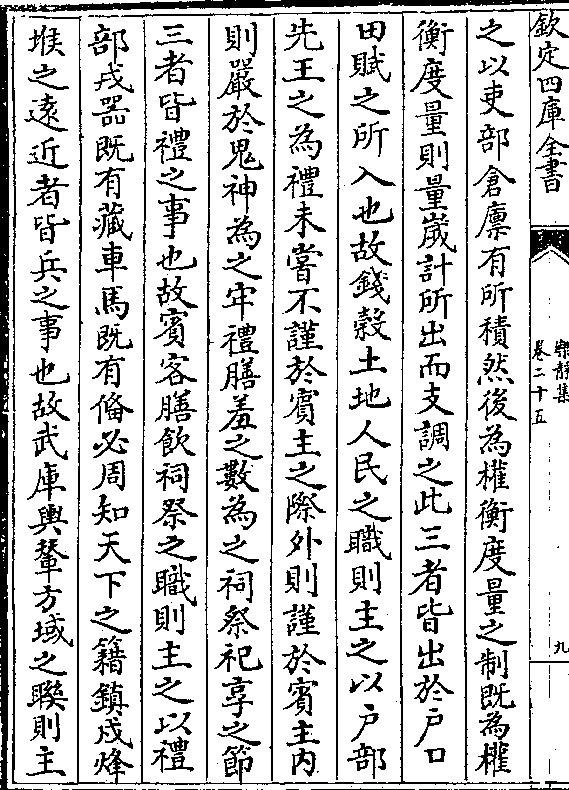 欽定四庫全書
樂靜集
卷二十五
九
之以吏部倉廪有所積然後為權衡度量之制既為權
衡度量則量嵗計所出而支調之此三者皆出於户口
田賦之所入也故錢榖土地人民之職則主之以户部
先王之為禮未嘗不謹於賓主之際外則謹於賓主内
則嚴於鬼神為之牢禮膳羞之數為之祠祭祀享之節
三者皆禮之事也故賓客膳飲祠祭之職則主之以禮
部戎器既有藏車馬既有偹必周知天下之籍鎮戍烽
堠之逺近者皆兵之事也故武庫輿輦方域之職則主